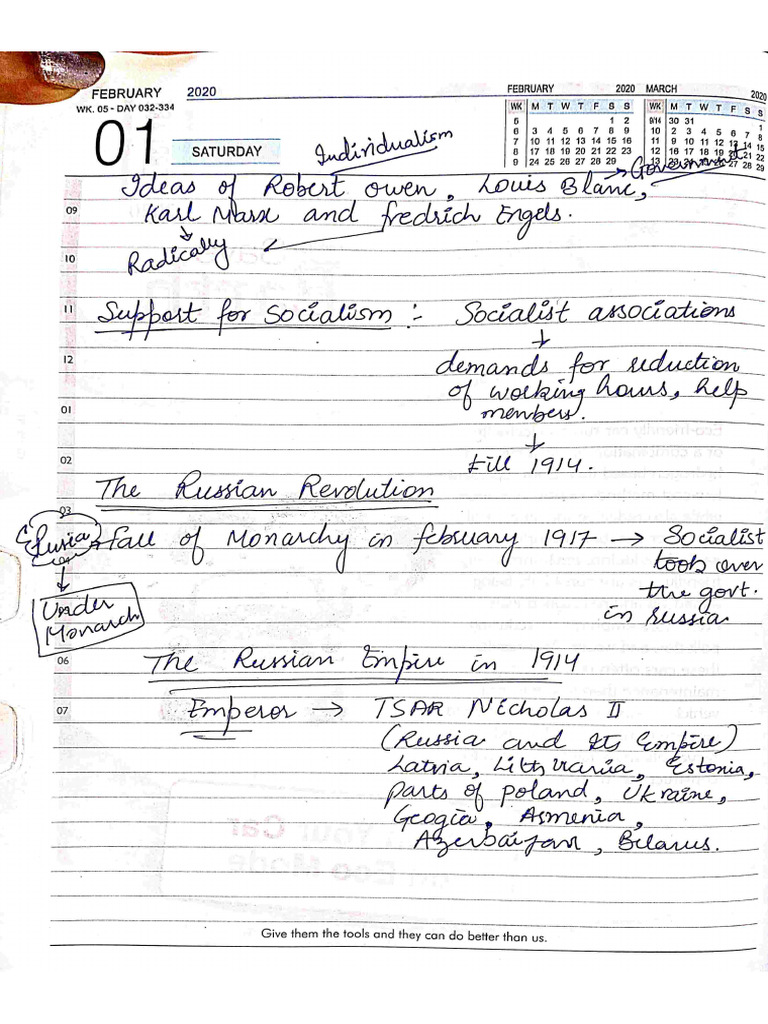 FEBRUARY 2020
WK. 05 - DAY 032-334
01
SATURDAY
FEBRUARY 2020
WK M T W T F S S
5 1 2
6 3 4 5 6 7 8 9
7 10 11 12 13 14 15 16
8 17 18 19 20 21 22 23
9 24 25 26 27 28 29
MARCH 2020
WK M T W T F S S
9/14 30 31 1
10 2 3 4 5 6 7 8
11 9 10 11 12 13 14 15
12 16 17 18 19 20 21 22
13 27 28 29
Individualism
→ Government
Ideas of Robert Owen, Louis Blanc,
09
Karl Marx and fredrich Engels.
Radically
10
11
Support for Socialism :- Socialist associations
12
demands for reduction
of working hours, help
01
members.
02
till 1914.
The Russian Revolution
03
Rusia
Fall of Monarchy in february 1917 → Socialist
took over
the govt.
in russia
Under
Monarch
06
The Russian Empire in 1914
07
Emperor → TSAR Nicholas II
(Russia and Its Empire)
Latvia, Lithuania, Estonia,
parts of poland, Ukraine,
Geogia, Armenia,
Azerbaijan, Belarus.
Give them the tools and they can do better than us.